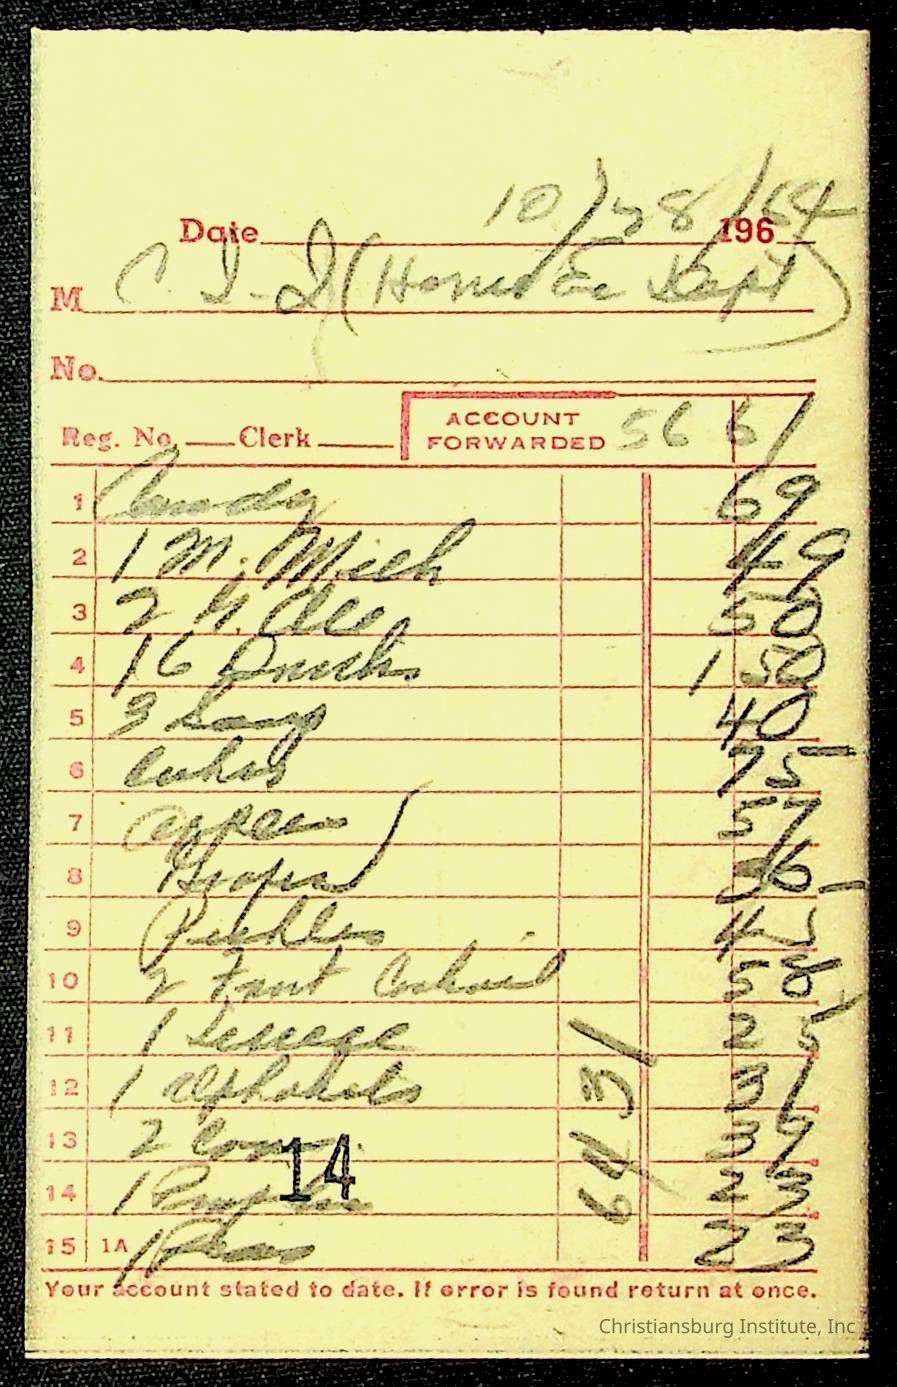 Date 10/28/64 196
M C. I. I (Home Ec Dept)
No.
Reg. No. Clerk ACCOUNT FORWARDED 56 61
1 Candy 69
2 1 M. 49
3 2 G. Ale 50
4 16 Drinks 1 50
5 3 40
6 Cukes 75
7 Apples 57
8 Grapes 36
9 Pickles 45
10 2 Fruit Cocktail 58
11 1 25
12 1 Alphabets 31
13 2 Corn 39
14 1 23
15 1A 1 Peas 23
64 31
14
Your account stated to date. If error is found return at once.
Christiansburg Institute, Inc